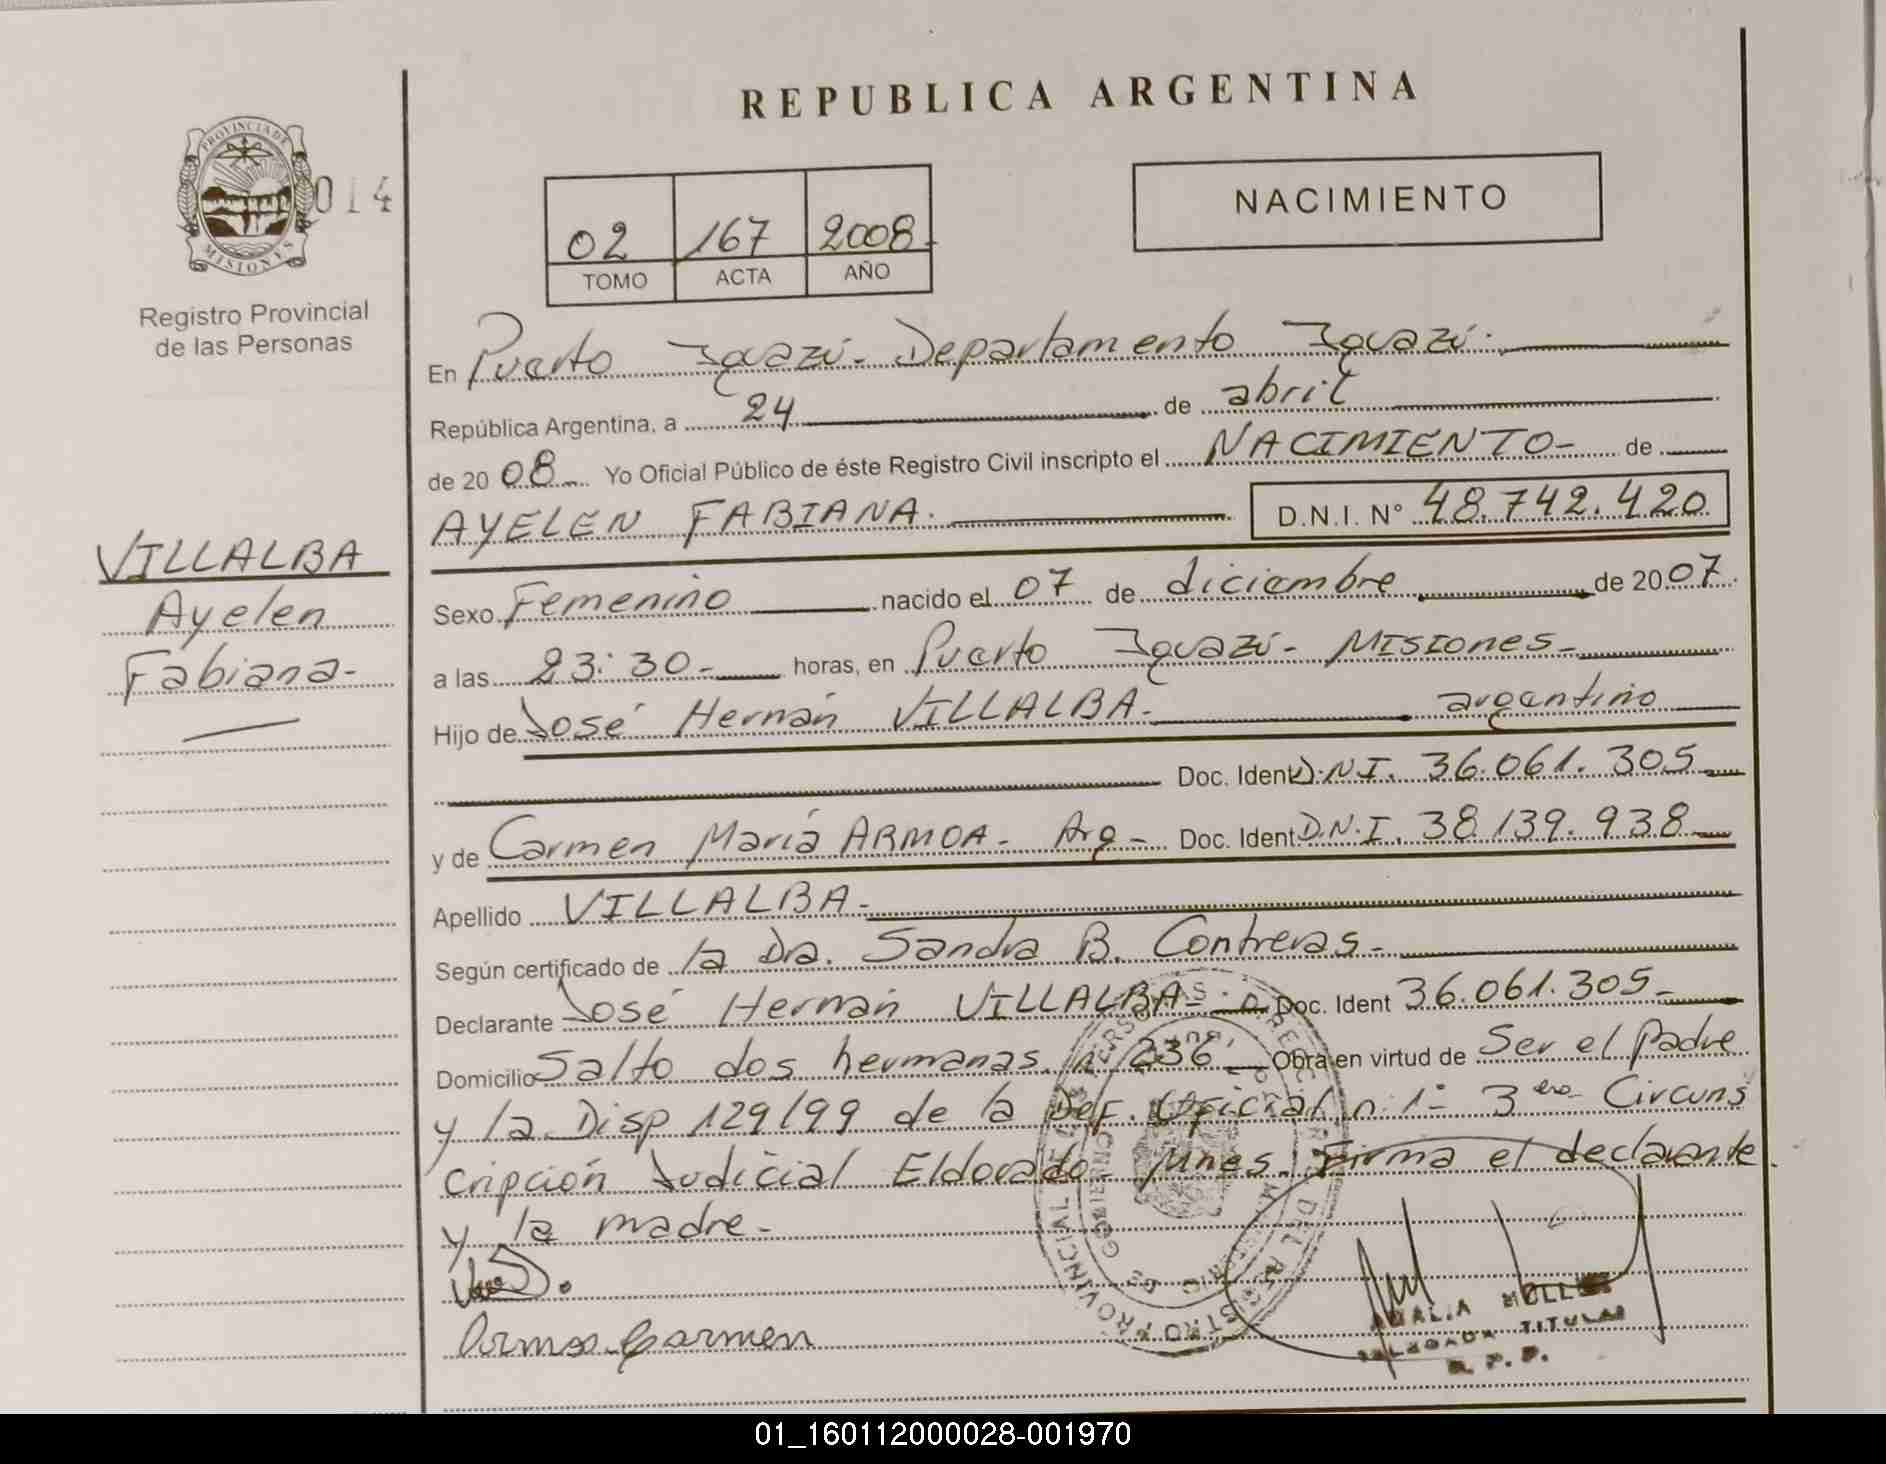 REPUBLICA ARGENTINA
PROVINCIA DE
MISIONES
014
Registro Provincial
de las Personas
02 167 2008
TOMO ACTA AÑO
NACIMIENTO
En Puerto Iguazú - Departamento Iguazú.
República Argentina, a 24 de abril
de 2008 Yo Oficial Público de éste Registro Civil inscripto el NACIMIENTO - de
AYELEN FABIANA. D.N.I. N° 48.742.420
VILLALBA
Ayelen
Fabiana-
Sexo Femenino nacido el 07 de diciembre de 2007
a las 23:30- horas, en Puerto Iguazú - Misiones-
Hijo de José Hernán VILLALBA- argentino
Doc. Ident D.N.I. 36.061.305
y de Carmen María ARMOA - Arg - Doc. Ident D.N.I. 38.139.938
Apellido VILLALBA-
Según certificado de la Dra. Sandra B. Contreras-
Declarante José Hernán VILLALBA- Doc. Ident 36.061.305-
Domicilio Salto dos hermanas n° 236 Obra en virtud de Ser el padre
y la Disp 129/99 de la Def. Oficial n° 1- 3era Circuns
cripción Judicial Eldorado- Mnes. Firma el declarante
y la madre-
Armoa Carmen
DELEGADA TITULAR
R.P.P.
01_160112000028-001970